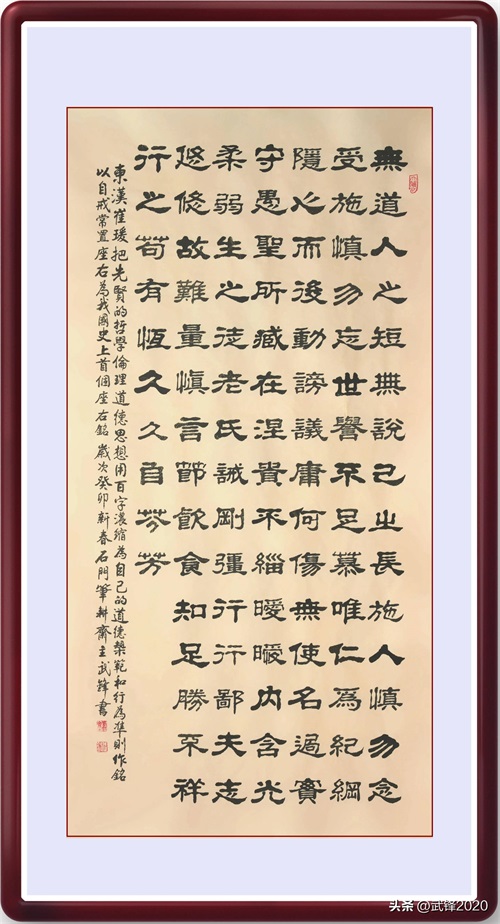 無道人之短無說己之長施人慎勿念
受施慎勿忘世譽不足慕唯仁為紀綱
隱心而後動謗議庸何傷無使名過實
守愚聖所藏在涅貴不緇曖曖內含光
柔弱生之徒老氏誡剛彊行行鄙夫志
悠悠故難量慎言節飲食知足勝不祥
行之苟有恆久久自芬芳
東漢崔瑗把先賢的哲學倫理道德思想用百字濃縮為自己的道德槼範和行為準則作銘
以自戒常置座右為我國史上首個座右銘 歲次癸卯新春石門筆耕齋主武鋒書
头条 @武锋2020